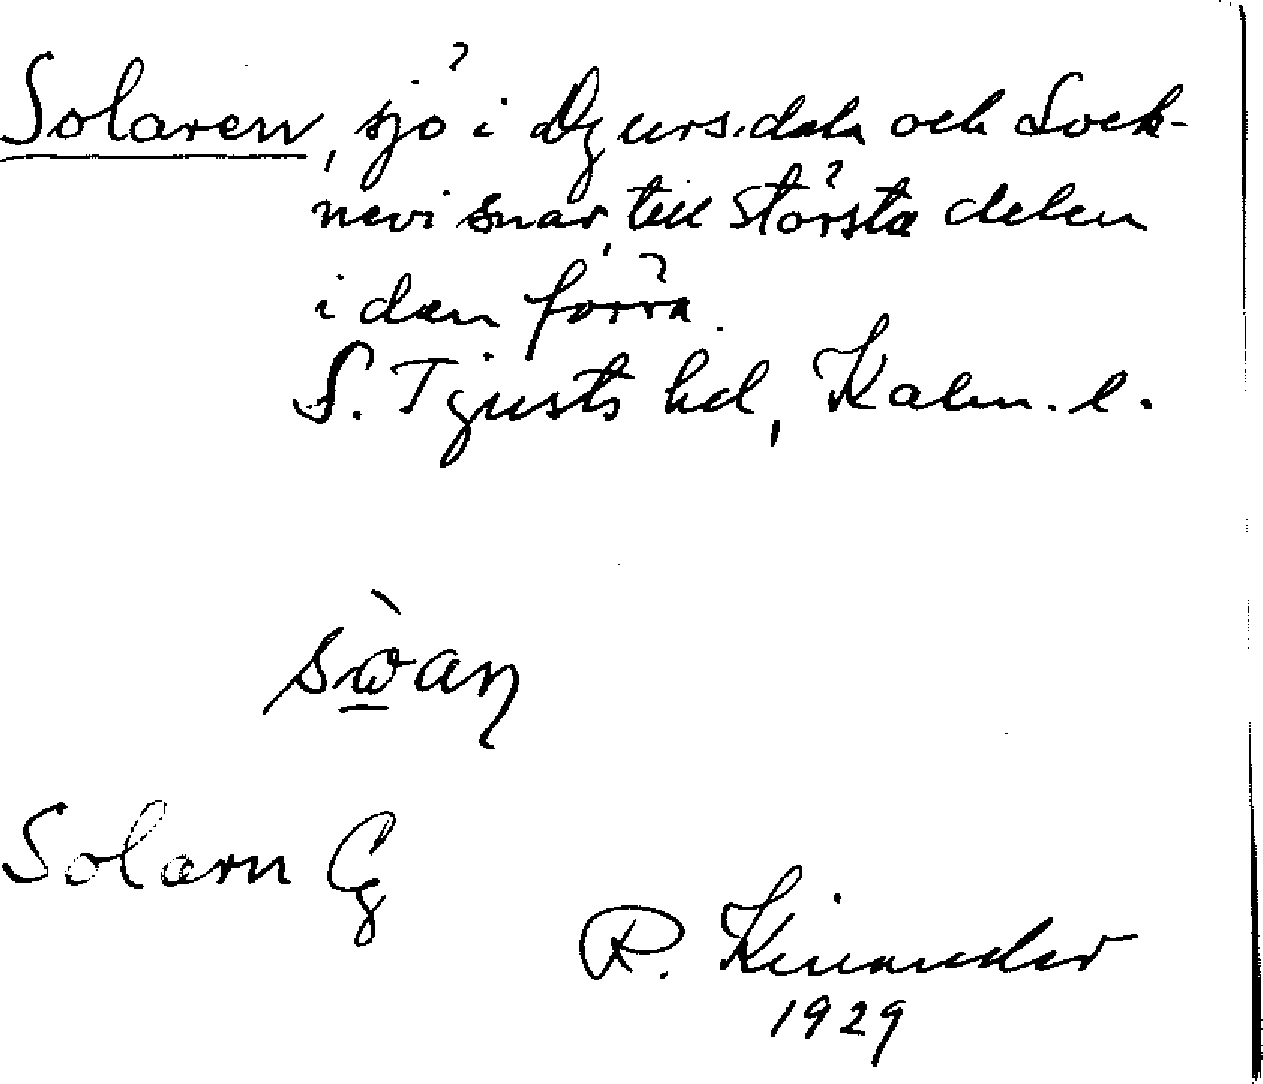 Solaren, sjö i Djursdala och Lock-
nevi snar, till största delen
i den förra.
S. Tjusts hd, Kalm. l.
Solarn Cg
R. Kinander
1929